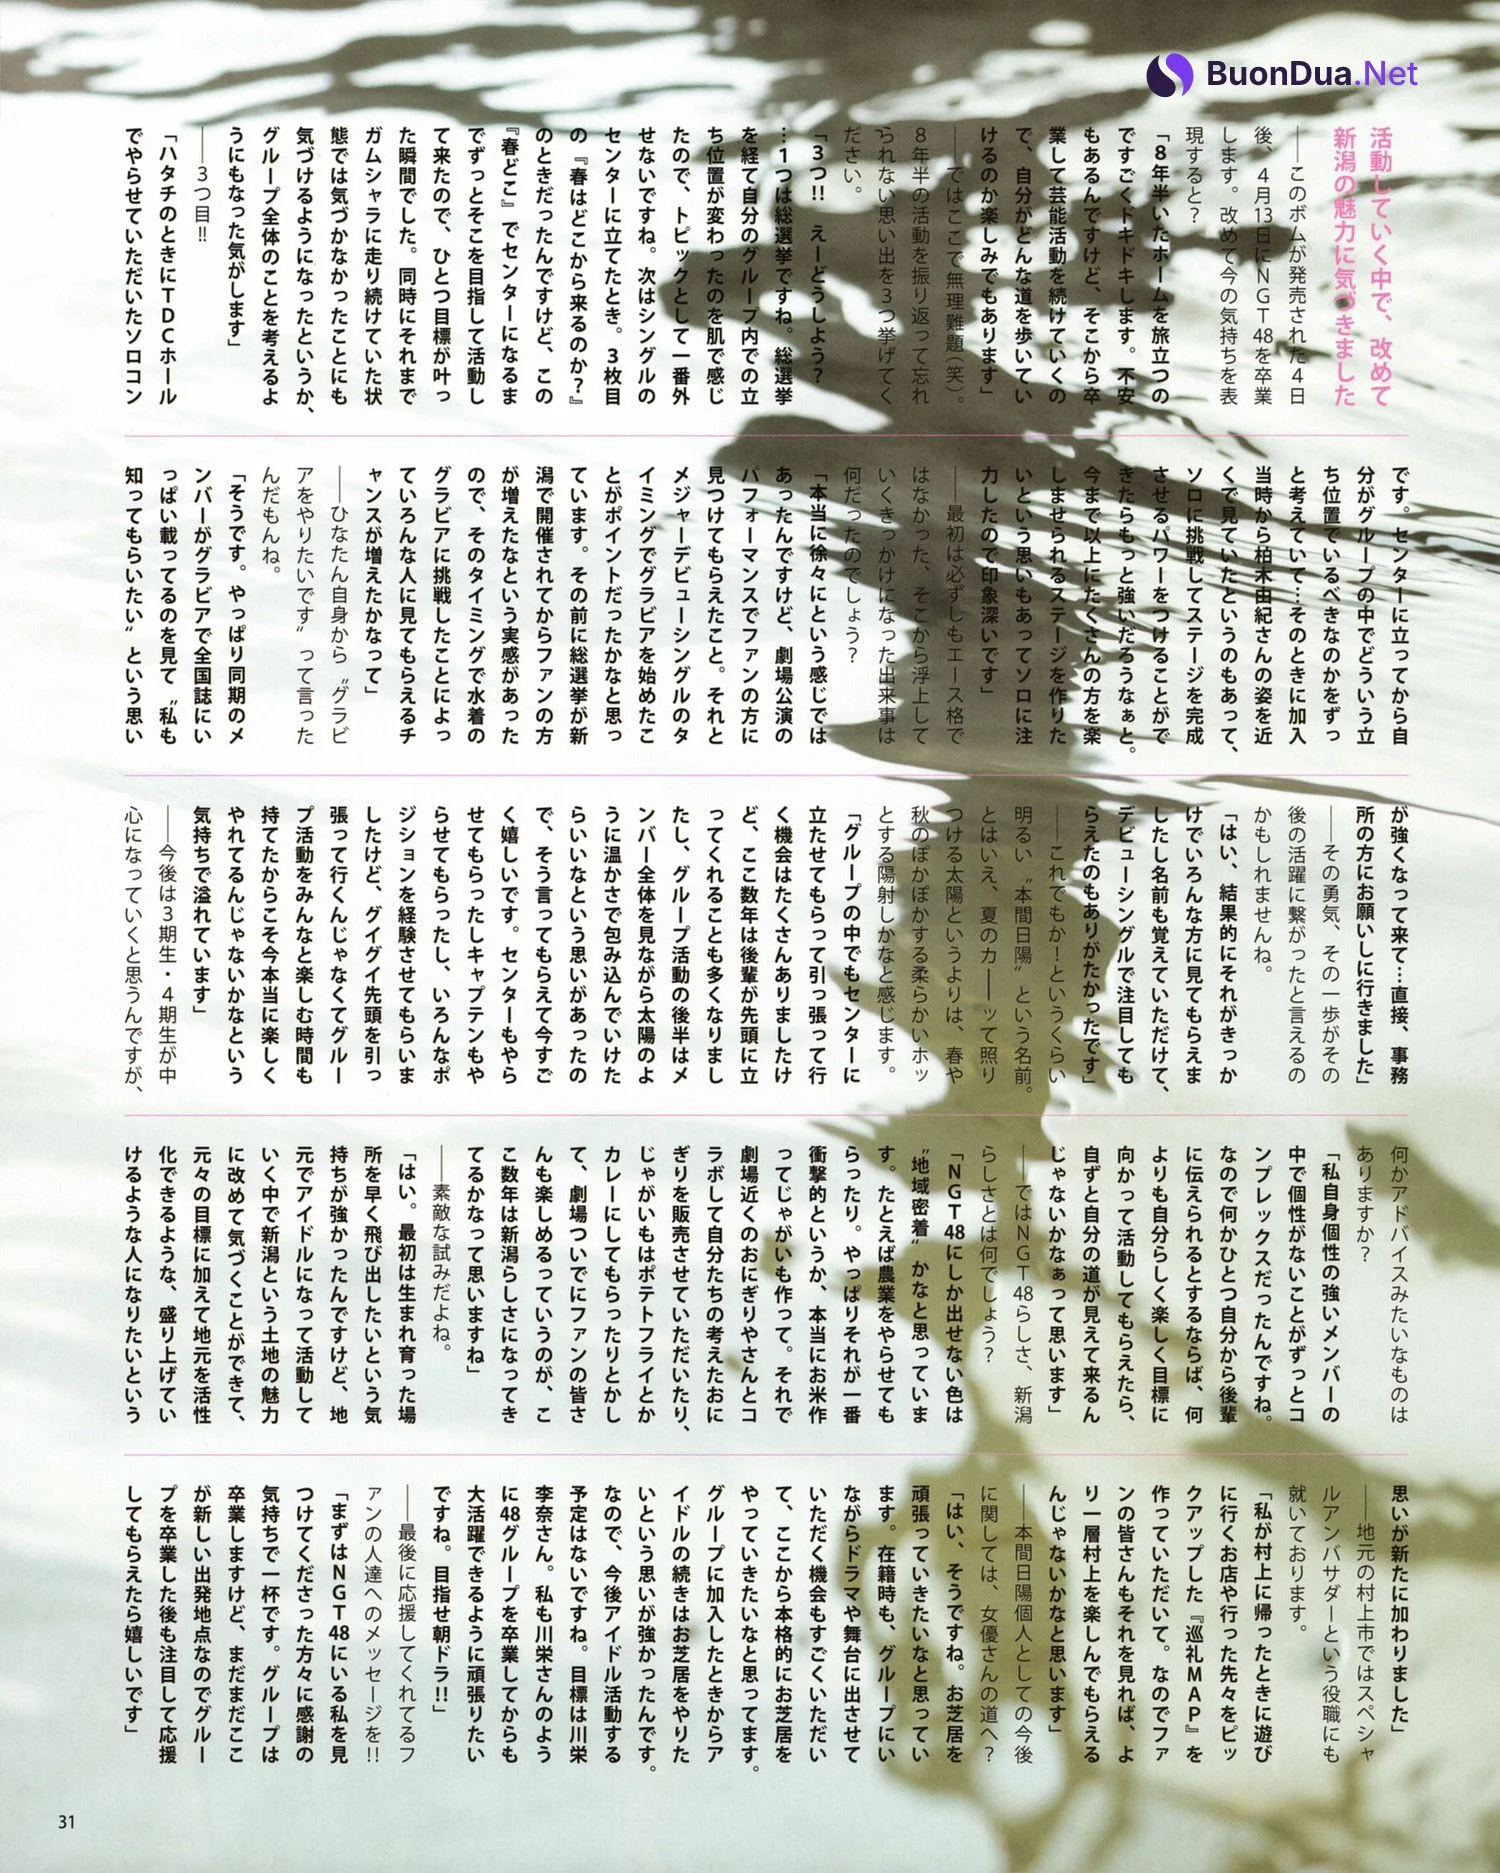 BuonDua.Net
活動していく中で、改めて
新潟の魅力に気づきました
――このボムが発売された4日
後、4月13日にNGT48を卒業
します。改めて今の気持ちを表
現すると？
「8年半いたホームを旅立つの
ですごくドキドキします。不安
もあるんですけど、そこから卒
業して芸能活動を続けていくの
で、自分がどんな道を歩いてい
けるのか楽しみでもあります」
――ではここで無理難題（笑）。
8年半の活動を振り返って忘れ
られない思い出を3つ挙げてく
ださい。
「3つ!! えーどうしよう？
…1つは総選挙ですね。総選挙
を経て自分のグループ内での立
ち位置が変わったのを肌で感じ
たので、トピックとして一番外
せないですね。次はシングルの
センターに立てたとき。3枚目
の『春はどこから来るのか？』
のときだったんですけど、この
『春どこ』でセンターになるま
でずっとそこを目指して活動し
て来たので、ひとつ目標が叶っ
た瞬間でした。同時にそれまで
ガムシャラに走り続けていた状
態では気づかなかったことにも
気づけるようになったというか、
グループ全体のことを考えるよ
うにもなった気がします」
――3つ目!!
「ハタチのときにTDCホール
でやらせていただいたソロコン
です。センターに立ってから自
分がグループの中でどういう立
ち位置でいるべきなのかをずっ
と考えていて…そのときに加入
当時から柏木由紀さんの姿を近
くで見ていたというのもあって、
ソロに挑戦してステージを完成
させるパワーをつけることがで
きたらもっと強いだろうなぁと。
今まで以上にたくさんの方を楽
しませられるステージを作りた
いという思いもあってソロに注
力したので印象深いです」
――最初は必ずしもエース格で
はなかった、そこから浮上して
いくきっかけになった出来事は
何だったのでしょう？
「本当に徐々にという感じでは
あったんですけど、劇場公演の
パフォーマンスでファンの方に
見つけてもらえたこと。それと
メジャーデビューシングルのタ
イミングでグラビアを始めたこ
とがポイントだったかなと思っ
ています。その前に総選挙が新
潟で開催されてからファンの方
が増えたなという実感があった
ので、そのタイミングで水着の
グラビアに挑戦したことによっ
ていろんな人に見てもらえるチ
ャンスが増えたかなって」
――ひなたん自身から〝グラビ
アをやりたいです〟って言った
んだもんね。
「そうです。やっぱり同期のメ
ンバーがグラビアで全国誌にい
っぱい載ってるのを見て〝私も
知ってもらいたい〟という思い
が強くなって来て…直接、事務
所の方にお願いしに行きました」
――その勇気、その一歩がその
後の活躍に繋がったと言えるの
かもしれませんね。
「はい、結果的にそれがきっか
けでいろんな方に見てもらえま
したし名前も覚えていただけて、
デビューシングルで注目しても
らえたのもありがたかったです」
――これでもか！というくらい
明るい〝本間日陽〟という名前。
とはいえ、夏のカ――ッて照り
つける太陽というよりは、春や
秋のぽかぽかする柔らかいホッ
とする陽射しかなと感じます。
「グループの中でもセンターに
立たせてもらって引っ張って行
く機会はたくさんありましたけ
ど、ここ数年は後輩が先頭に立
ってくれることも多くなりまし
たし、グループ活動の後半はメ
ンバー全体を見ながら太陽のよ
うに温かさで包み込んでいけた
らいいなという思いがあったの
で、そう言ってもらえて今すご
く嬉しいです。センターもやら
せてもらったしキャプテンもや
らせてもらったし、いろんなポ
ジションを経験させてもらいま
したけど、グイグイ先頭を引っ
張って行くんじゃなくてグルー
プ活動をみんなと楽しむ時間も
持てたからこそ今本当に楽しく
やれてるんじゃないかなという
気持ちで溢れています」
――今後は3期生・4期生が中
心になっていくと思うんですが、
何かアドバイスみたいなものは
ありますか？
「私自身個性の強いメンバーの
中で個性がないことがずっとコ
ンプレックスだったんですね。
なので何かひとつ自分から後輩
に伝えられるとするならば、何
よりも自分らしく楽しく目標に
向かって活動してもらえたら、
自ずと自分の道が見えて来るん
じゃないかなぁって思います」
――ではNGT48らしさ、新潟
らしさとは何でしょう？
「NGT48にしか出せない色は
〝地域密着〟かなと思っていま
す。たとえば農業をやらせても
らったり。やっぱりそれが一番
衝撃的というか、本当にお米作
ってじゃがいも作って。それで
劇場近くのおにぎりやさんとコ
ラボして自分たちの考えたおに
ぎりを販売させていただいたり、
じゃがいもはポテトフライとか
カレーにしてもらったりとかし
て、劇場ついでにファンの皆さ
んも楽しめるっていうのが、こ
こ数年は新潟らしさになってき
てるかなって思いますね」
――素敵な試みだよね。
「はい。最初は生まれ育った場
所を早く飛び出したいという気
持ちが強かったんですけど、地
元でアイドルになって活動して
いく中で新潟という土地の魅力
に改めて気づくことができて、
元々の目標に加えて地元を活性
化できるような、盛り上げてい
けるような人になりたいという
思いが新たに加わりました」
――地元の村上市ではスペシャ
ルアンバサダーという役職にも
就いております。
「私が村上に帰ったときに遊び
に行くお店や行った先々をピッ
クアップした『巡礼MAP』を
作っていただいて。なのでファ
ンの皆さんもそれを見れば、よ
り一層村上を楽しんでもらえる
んじゃないかなと思います」
――本間日陽個人としての今後
に関しては、女優さんの道へ？
「はい、そうですね。お芝居を
頑張っていきたいなと思ってい
ます。在籍時も、グループにい
ながらドラマや舞台に出させて
いただく機会もすごくいただい
て、ここから本格的にお芝居を
やっていきたいなと思ってます。
グループに加入したときからア
イドルの続きはお芝居をやりた
いという思いが強かったんです。
なので、今後アイドル活動する
予定はないですね。目標は川栄
李奈さん。私も川栄さんのよう
に48グループを卒業してからも
大活躍できるように頑張りたい
ですね。目指せ朝ドラ!!」
――最後に応援してくれてるフ
ァンの人達へのメッセージを!!
「まずはNGT48にいる私を見
つけてくださった方々に感謝の
気持ちで一杯です。グループは
卒業しますけど、まだまだここ
が新しい出発地点なのでグルー
プを卒業した後も注目して応援
してもらえたら嬉しいです」
31